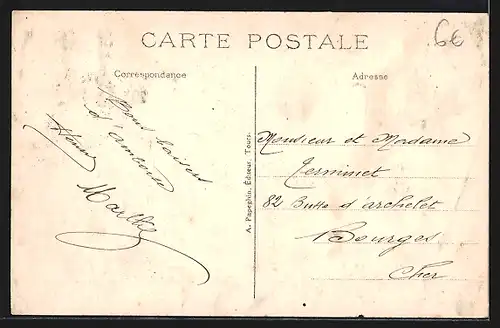 6€
CARTE POSTALE
Correspondance
Adresse
Bons baisers
d'amour
Marthe
A. Papeghin, Editeur, Tours.
Monsieur et Madame
Terminet
82 Butte d'archelet
Bourges
Cher